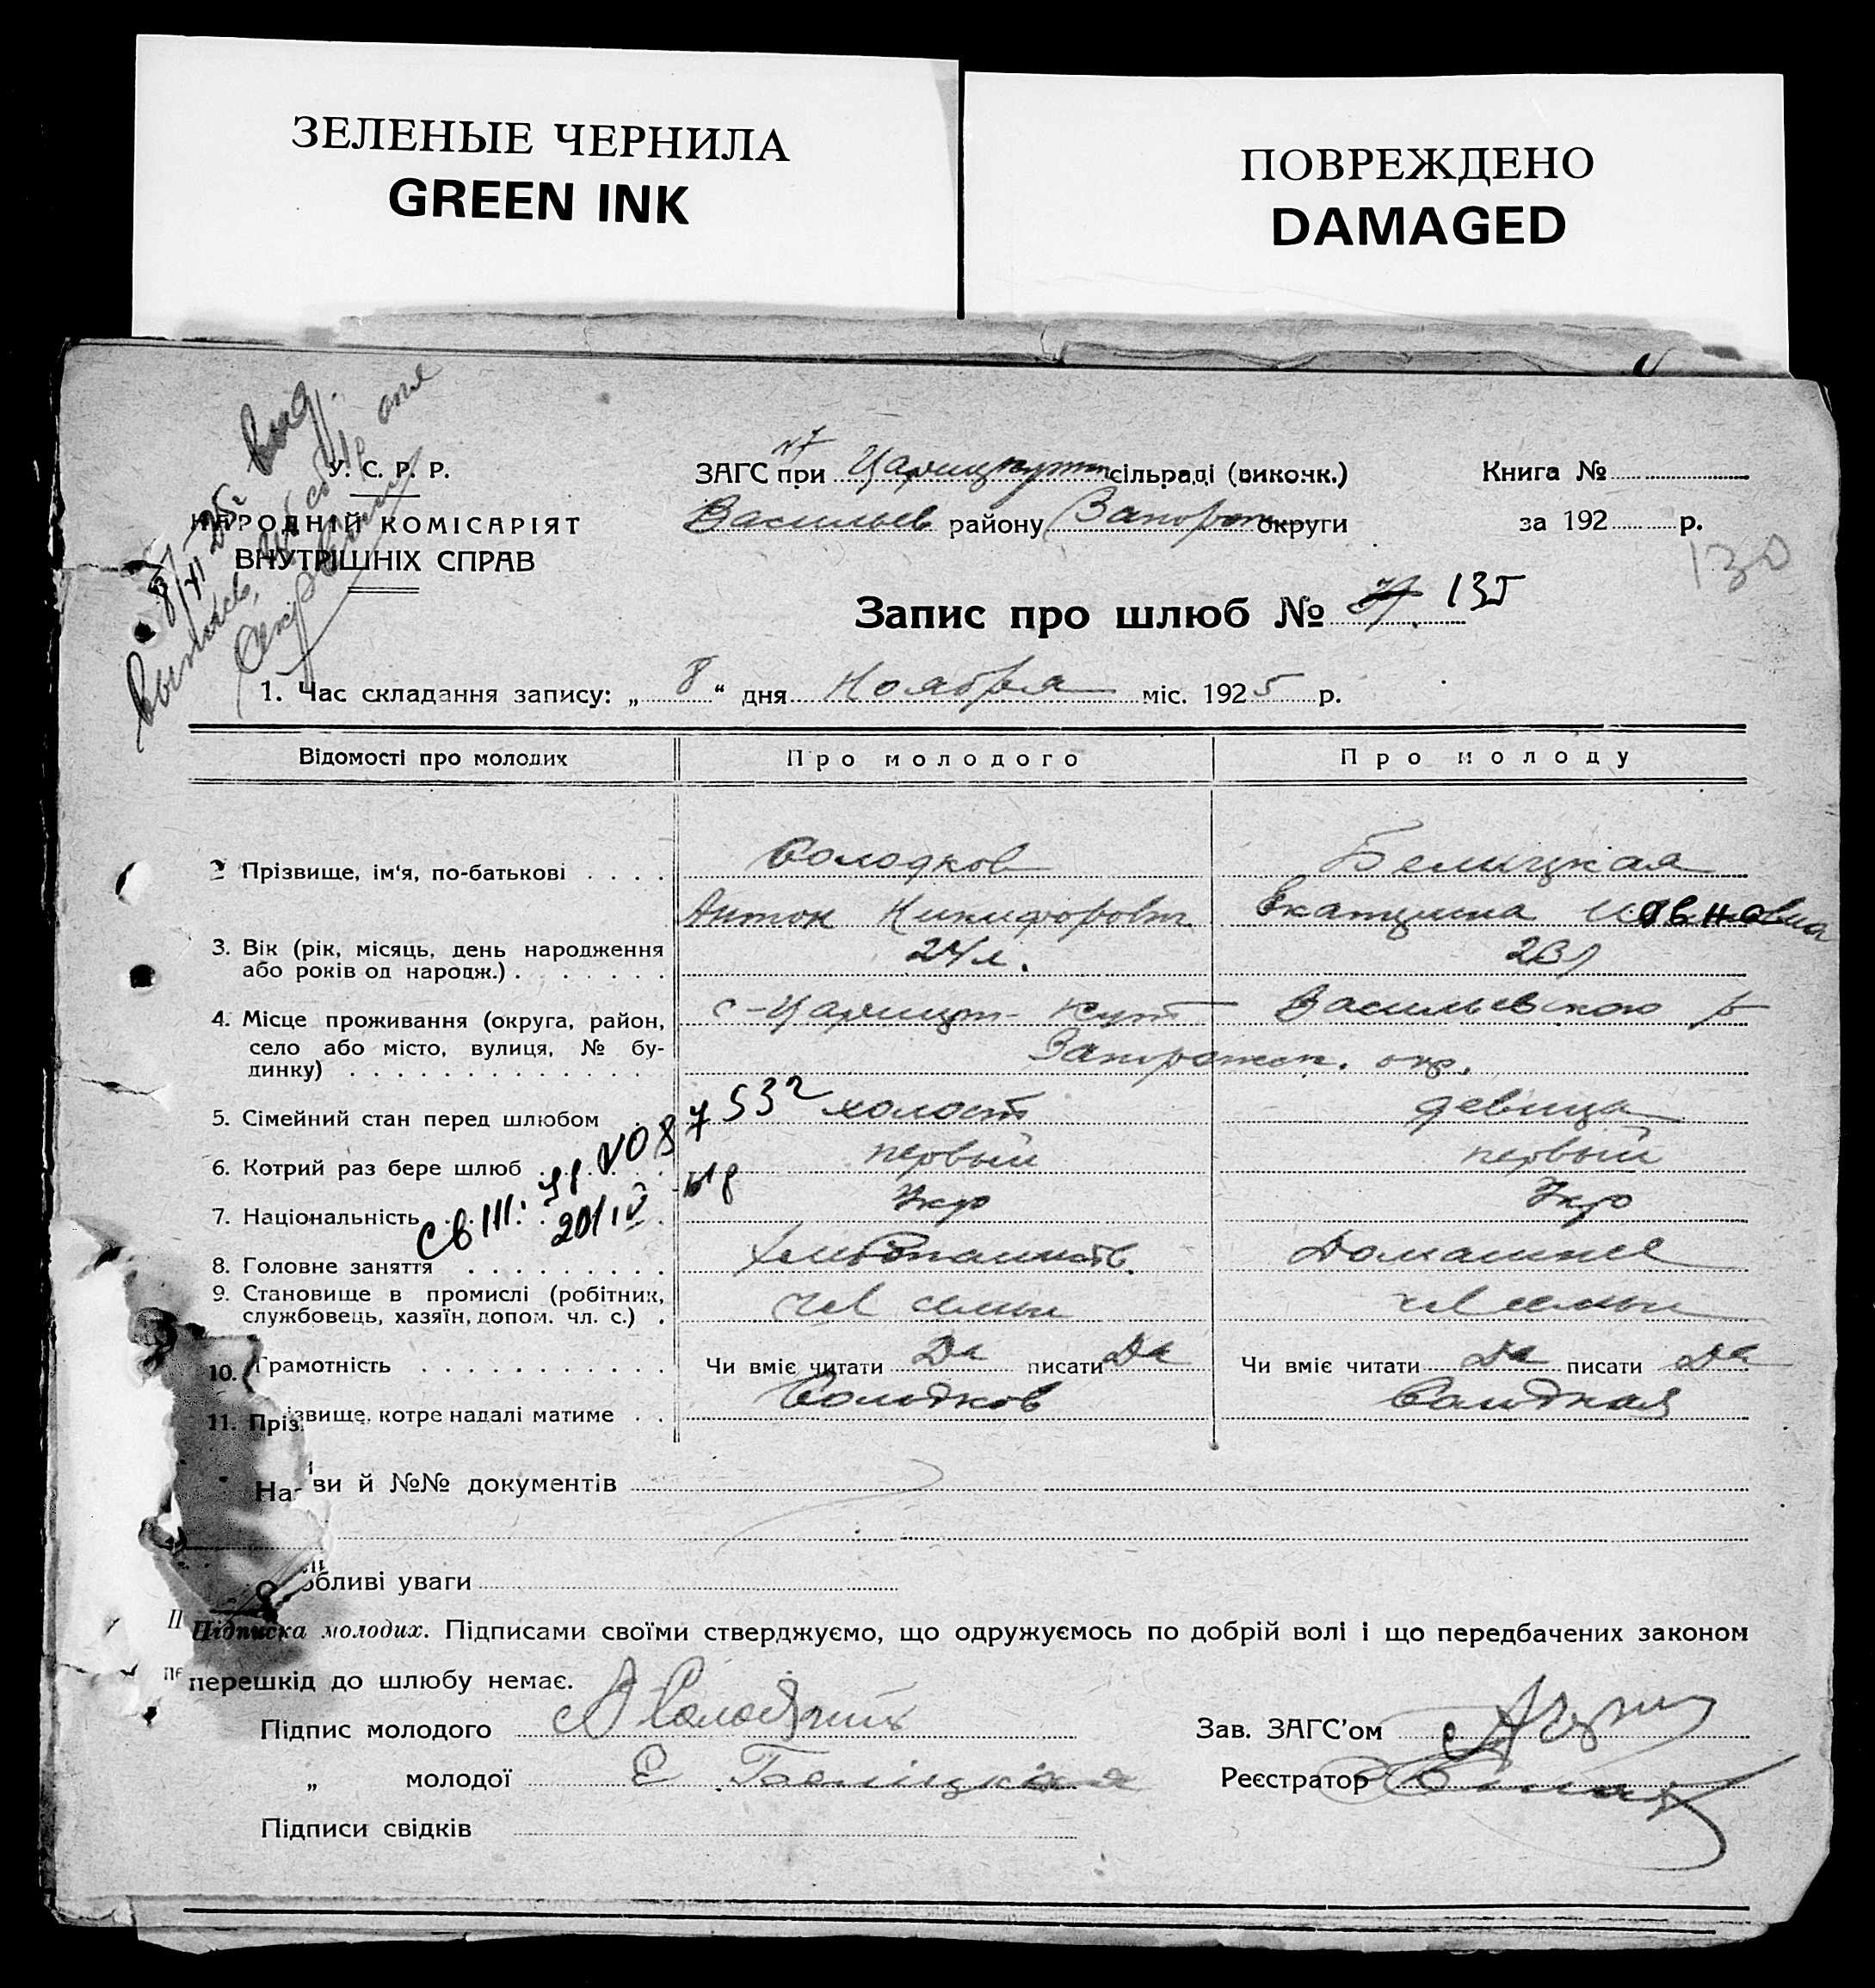 ЗЕЛЕНЫЕ ЧЕРНИЛА
GREEN INK
ПОВРЕЖДЕНО
DAMAGED
У. С. Р. Р.
НАРОДНІЙ КОМІСАРІЯТ
ВНУТРІШНІХ СПРАВ
ЗАГС при Царицкутт сільраді (виконк.)
Васильев району Запорож округи
Книга №
за 192 р.
130
Запис про шлюб № 135
1. Час складання запису: „ 8 “ дня Ноября міс. 1925 р.
Відомості про молодих Про молодого Про молоду
2 Прізвище, ім'я, по-батькові Солодков Белицкая
Антон Никифорович Екатерина
3. Вік (рік, місяць, день народження або років од народж.) 24 л. 23 л
4. Місце проживання (округа, район, с-Царицын- Кут Васильевского р
село або місто, вулиця, № бу-
динку) Запорожск. окр.
5. Сімейний стан перед шлюбом холост девица
6. Котрий раз бере шлюб первый первый
7. Національність Укр Укр
8. Головне заняття хлебопашеств. Домашнее
9. Становище в промислі (робітник,
службовець, хазяїн, допом. чл. с.) чл семьи чл семьи
10. Грамотність Чи вміє читати Да писати Да Чи вміє читати Да писати Да
11. Прізвище, котре надалі матиме Солодков Солодкая
Назви й №№ документів
обливі уваги
Підписка молодих. Підписами своїми стверджуємо, що одружуємось по добрій волі і що передбачених законом
перешкід до шлюбу немає.
Підпис молодого А Солодкий
Зав. ЗАГС'ом
„ молодої Е Беліцкая
Реєстратор
Підписи свідків